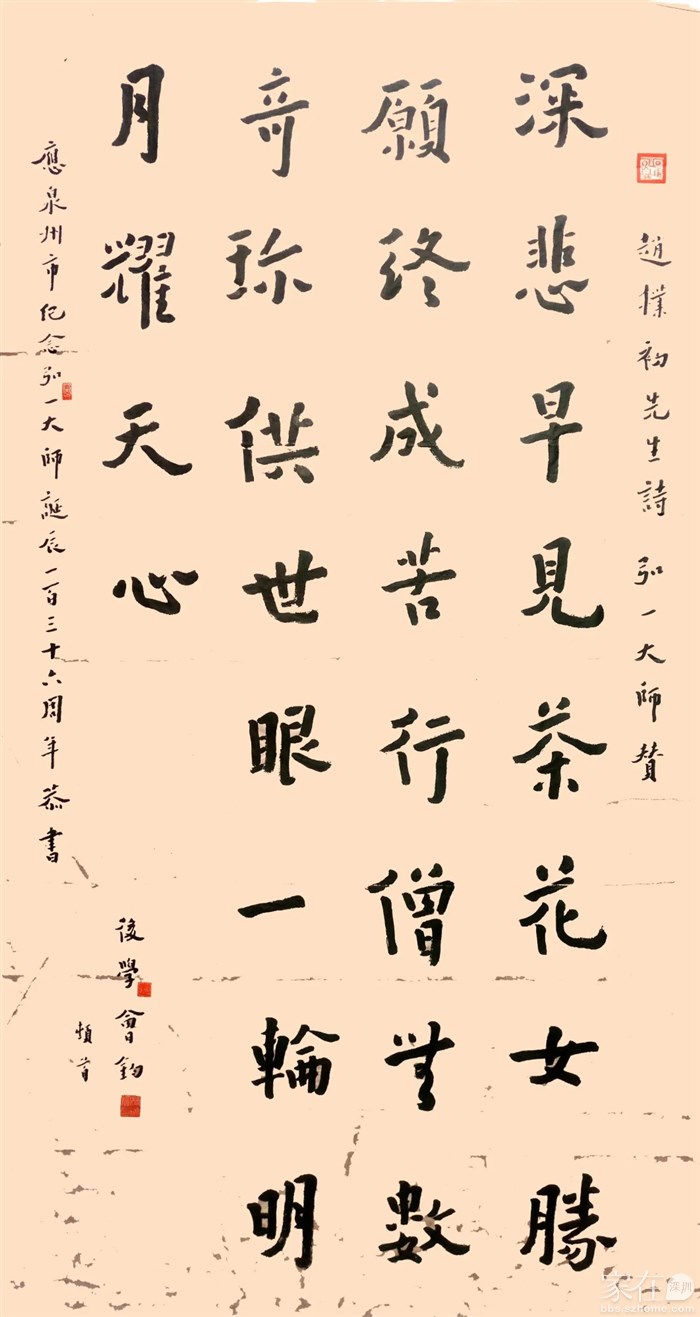 趙樸初先生詩 弘一大師贊
深悲早見茶花女勝
願终成苦行僧無數
奇珎供世眼一輪明
月耀天心
應泉州市纪念弘一大師誕辰一百三十六周年恭書
後學會鈞
頓首
家在深圳
bbs.szhome.com